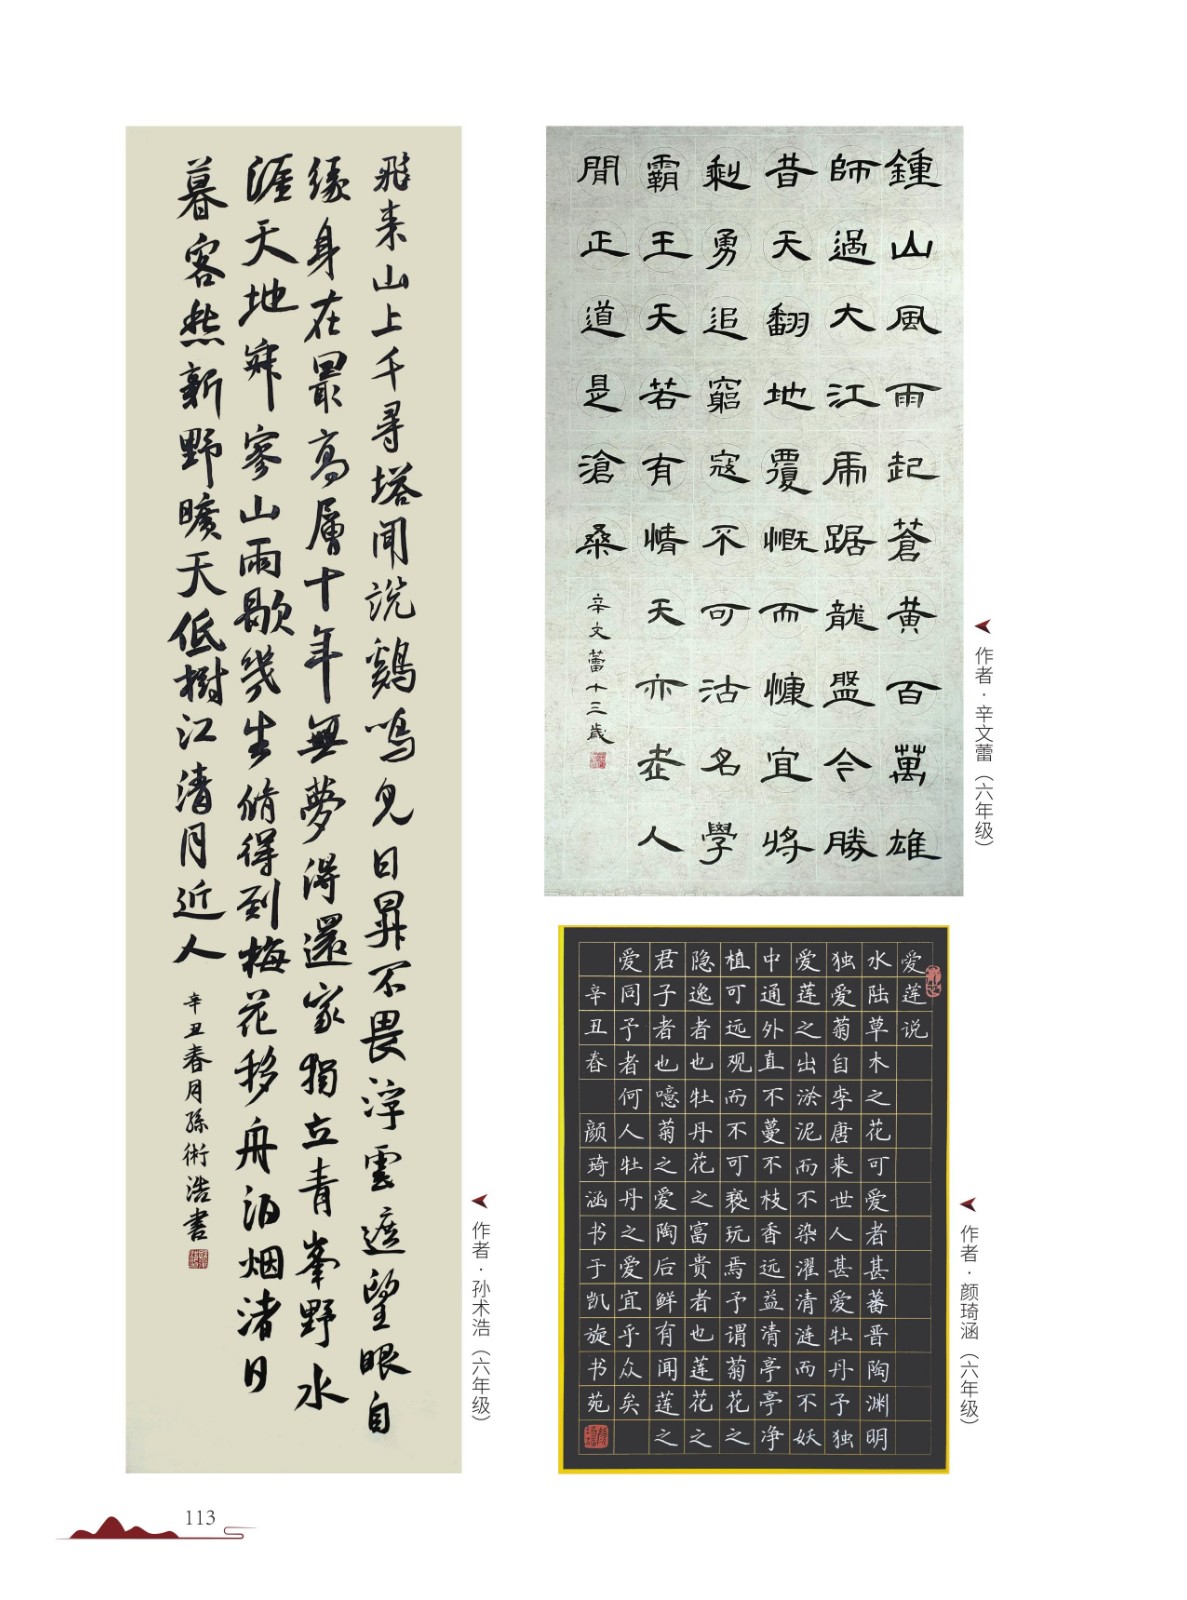 飛来山上千尋塔聞説鷄鳴見日昇不畏浮雲遮望眼自
緣身在最高層十年無夢得還家獨立青峯野水
涯天地寂寥山雨歇幾生脩得到梅花移舟泊烟渚日
暮客愁新野曠天低樹江清月近人
辛丑春月孫術浩書
作者·孙术浩（六年级）
鍾山風雨起蒼黃百萬雄
師過大江虎踞龍盤今勝
昔天翻地覆慨而慷宜將
剩勇追窮寇不可沽名學
霸王天若有情天亦老人
閒正道是滄桑
辛文蕾十三歲
作者·辛文蕾（六年级）
爱莲说
水陆草木之花可爱者甚蕃晋陶渊明
独爱菊自李唐来世人甚爱牡丹予独
爱莲之出淤泥而不染濯清涟而不妖
中通外直不蔓不枝香远益清亭亭净
植可远观而不可亵玩焉予谓菊花之
隐逸者也牡丹花之富贵者也莲花之
君子者也噫菊之爱陶后鲜有闻莲之
爱同予者何人牡丹之爱宜乎众矣
辛丑春 颜琦涵书于凯旋书苑
作者·颜琦涵（六年级）
113